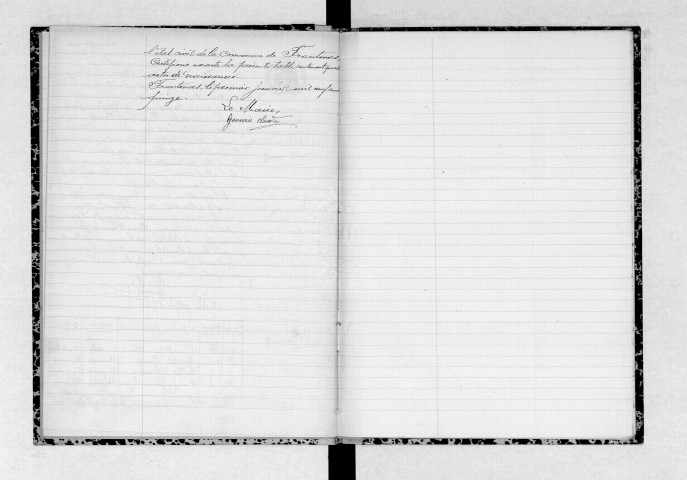 l'état civil de la commune de Frontenas,
Certifions exacte la présente table contenant
actes de naissances.
Frontenas, le premier janvier mil neuf cent
quinze.
Le Maire,